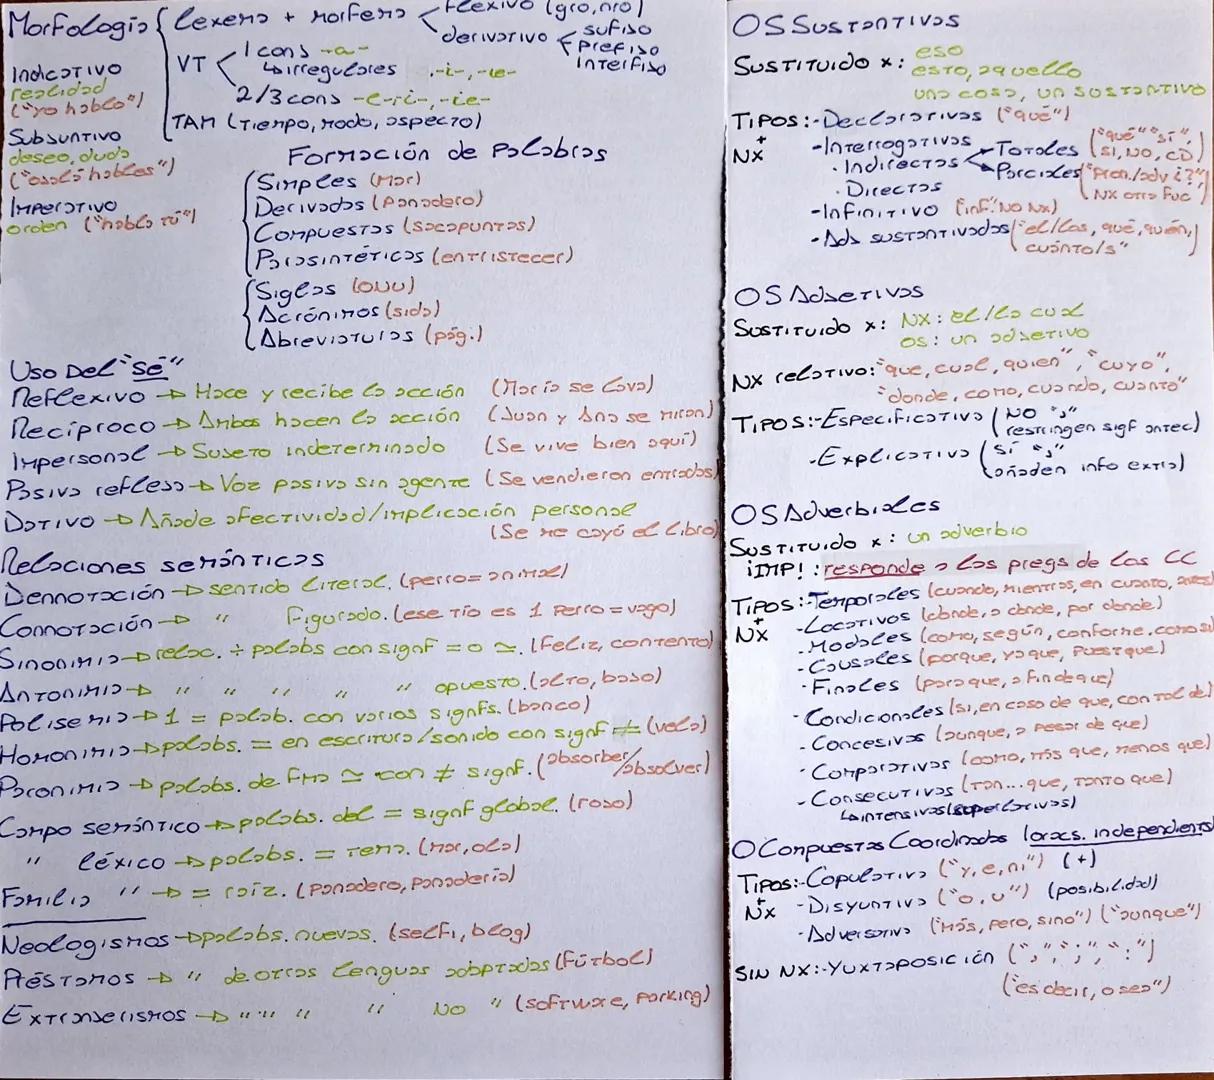 Morfología { lexema + morfema < flexivo (gro, nro)
derivativo < sufijo
prefijo
interfijo
VT < 1 conj -a-
↳ irregulares -i-, -ie-
2/3 conj -e-, -i-, -ie-
TAM (tiempo, modo, aspecto)
Indicativo
realidad
("yo hablo")
Subjuntivo
deseo, duda
("ojalá hables")
Imperativo
orden ("habla tú")
Formación de palabras
Simples (mar)
Derivadas (panadero)
Compuestas (sacapuntas)
Parasintéticas (entristecer)
Siglas (ONU)
Acrónimos (sida)
Abreviaturas (pág.)
Uso del "se"
Reflexivo → Hace y recibe la acción (María se lava)
Recíproco → Ambos hacen la acción (Juan y Ana se miran)
Impersonal → Sujeto indeterminado (Se vive bien aquí)
Pasiva refleja → Voz pasiva sin agente (Se vendieron entradas)
Dativo → Añade afectividad/implicación personal
(Se me cayó el libro)
Relaciones semánticas
Dennotación → sentido literal. (perro = animal)
Connotación → " figurado. (ese tío es 1 perro = vago)
Sinonimia → relac. ÷ palabs con signf = o ≃. (feliz, contento)
Antonimia → " " " " " opuesto. (alto, bajo)
Polisemia → 1 = palab. con varios signfs. (banco)
Homonimia → palabs. = en escritura/sonido con signf ≠ (vela)
Paronimia → palabs. de fma ≃ con ≠ signf. (absorber/absolver)
Campo semántico → palabs. del = signf global. (rosa)
" léxico → palabs. = tema. (mar, ola)
Familia " → = raíz. (panadero, panadería)
Neologismos → palabs. nuevas. (selfi, blog)
Préstamos → " de otras lenguas adaptadas (fútbol)
Extranjerismos → " " " " NO " (software, parking)
OS Sustantivas
Sustituido x: eso
esto, aquello
una cosa, un sustantivo
TIPOS: - Declarativas ("que")
+
NX
- Interrogativas
· Indirectas < Totales ("que" "si", SI, NO, CD)
Parciales ("Pron./adv ¿?", NX otra fuc)
· Directas
- Infinitivo (inf. NO NX)
- Adj sustantivadas ("el/las, que, quien,
cuanto/s"
OS Adjetivas
Sustituido x: NX: el/la cual
OS: un adjetivo
NX relativo: "que, cual, quien", "cuyo",
"donde, como, cuando, cuanto"
TIPOS: - Especificativa (NO ","
restringen sigf antec)
- Explicativa (sí ","
añaden info extra)
OS Adverbiales
Sustituido x: un adverbio
¡IMP!: responde a las pregs de las CC
TIPOS: - Temporales (cuando, mientras, en cuanto, antes)
+
NX
- Locativas (donde, a donde, por donde)
- Modales (como, según, conforme, como si)
- Causales (porque, ya que, puesto que)
- Finales (para que, a fin de que)
- Condicionales (si, en caso de que, con tal de)
- Concesivas (aunque, a pesar de que)
- Comparativas (como, más que, menos que)
- Consecutivas (tan... que, tanto que)
↳ intensivas (superlativas)
O Compuestas Coordinadas (oracs. independients)
TIPOS: - Copulativa ("y, e, ni") (+)
+
NX
- Disyuntiva ("o, u") (posibilidad)
- Adversativa ("más, pero, sino") ("aunque")
SIN NX: - Yuxtaposición (",", ";", ":")
("es decir, o sea")